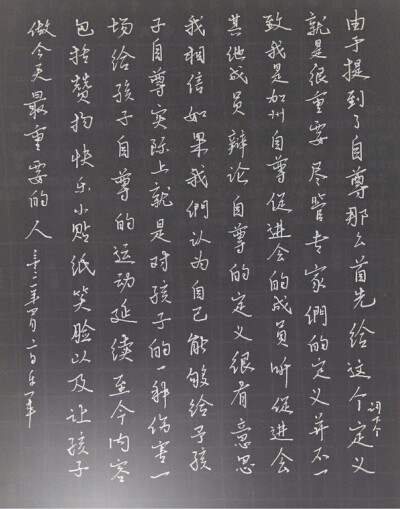 由于提到了自尊那么首先给这个定义
就是很重要尽管专家們的定义并不一
致我是加州自尊促进会的成员听促进会
其他成员辩论自尊的定义很有意思
我相信如果我們认为自己能够给予孩
子自尊实际上就是对孩子的一种伤害一
场给孩子自尊的运动延续至今内容
包括赞扬快乐小贴纸笑脸以及让孩子
做今天最重要的人